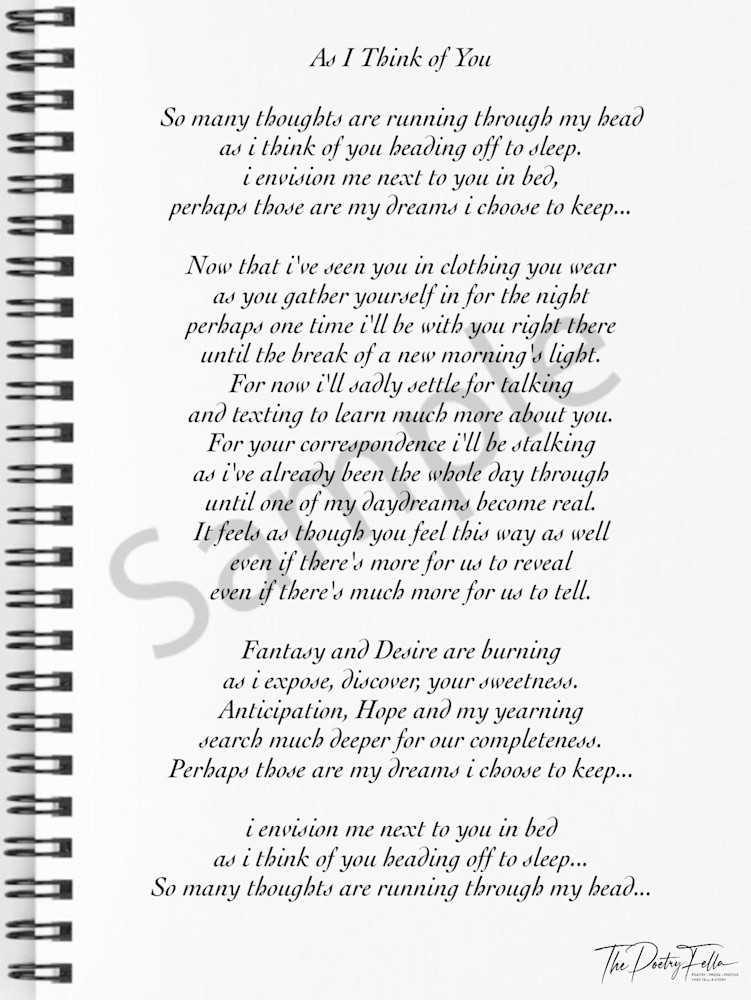 As I Think of You
So many thoughts are running through my head
as i think of you heading off to sleep.
i envision me next to you in bed,
perhaps those are my dreams i choose to keep...
Now that i've seen you in clothing you wear
as you gather yourself in for the night
perhaps one time i'll be with you right there
until the break of a new morning's light.
For now i'll sadly settle for talking
and texting to learn much more about you.
For your correspondence i'll be stalking
as i've already been the whole day through
until one of my daydreams become real.
It feels as though you feel this way as well
even if there's more for us to reveal
even if there's much more for us to tell.
Fantasy and Desire are burning
as i expose, discover, your sweetness.
Anticipation, Hope and my yearning
search much deeper for our completeness.
Perhaps those are my dreams i choose to keep...
i envision me next to you in bed
as i think of you heading off to sleep...
So many thoughts are running through my head...
Sample
The Poetry Fella
POETRY • PROSE • PHOTOS
THAT TELL A STORY